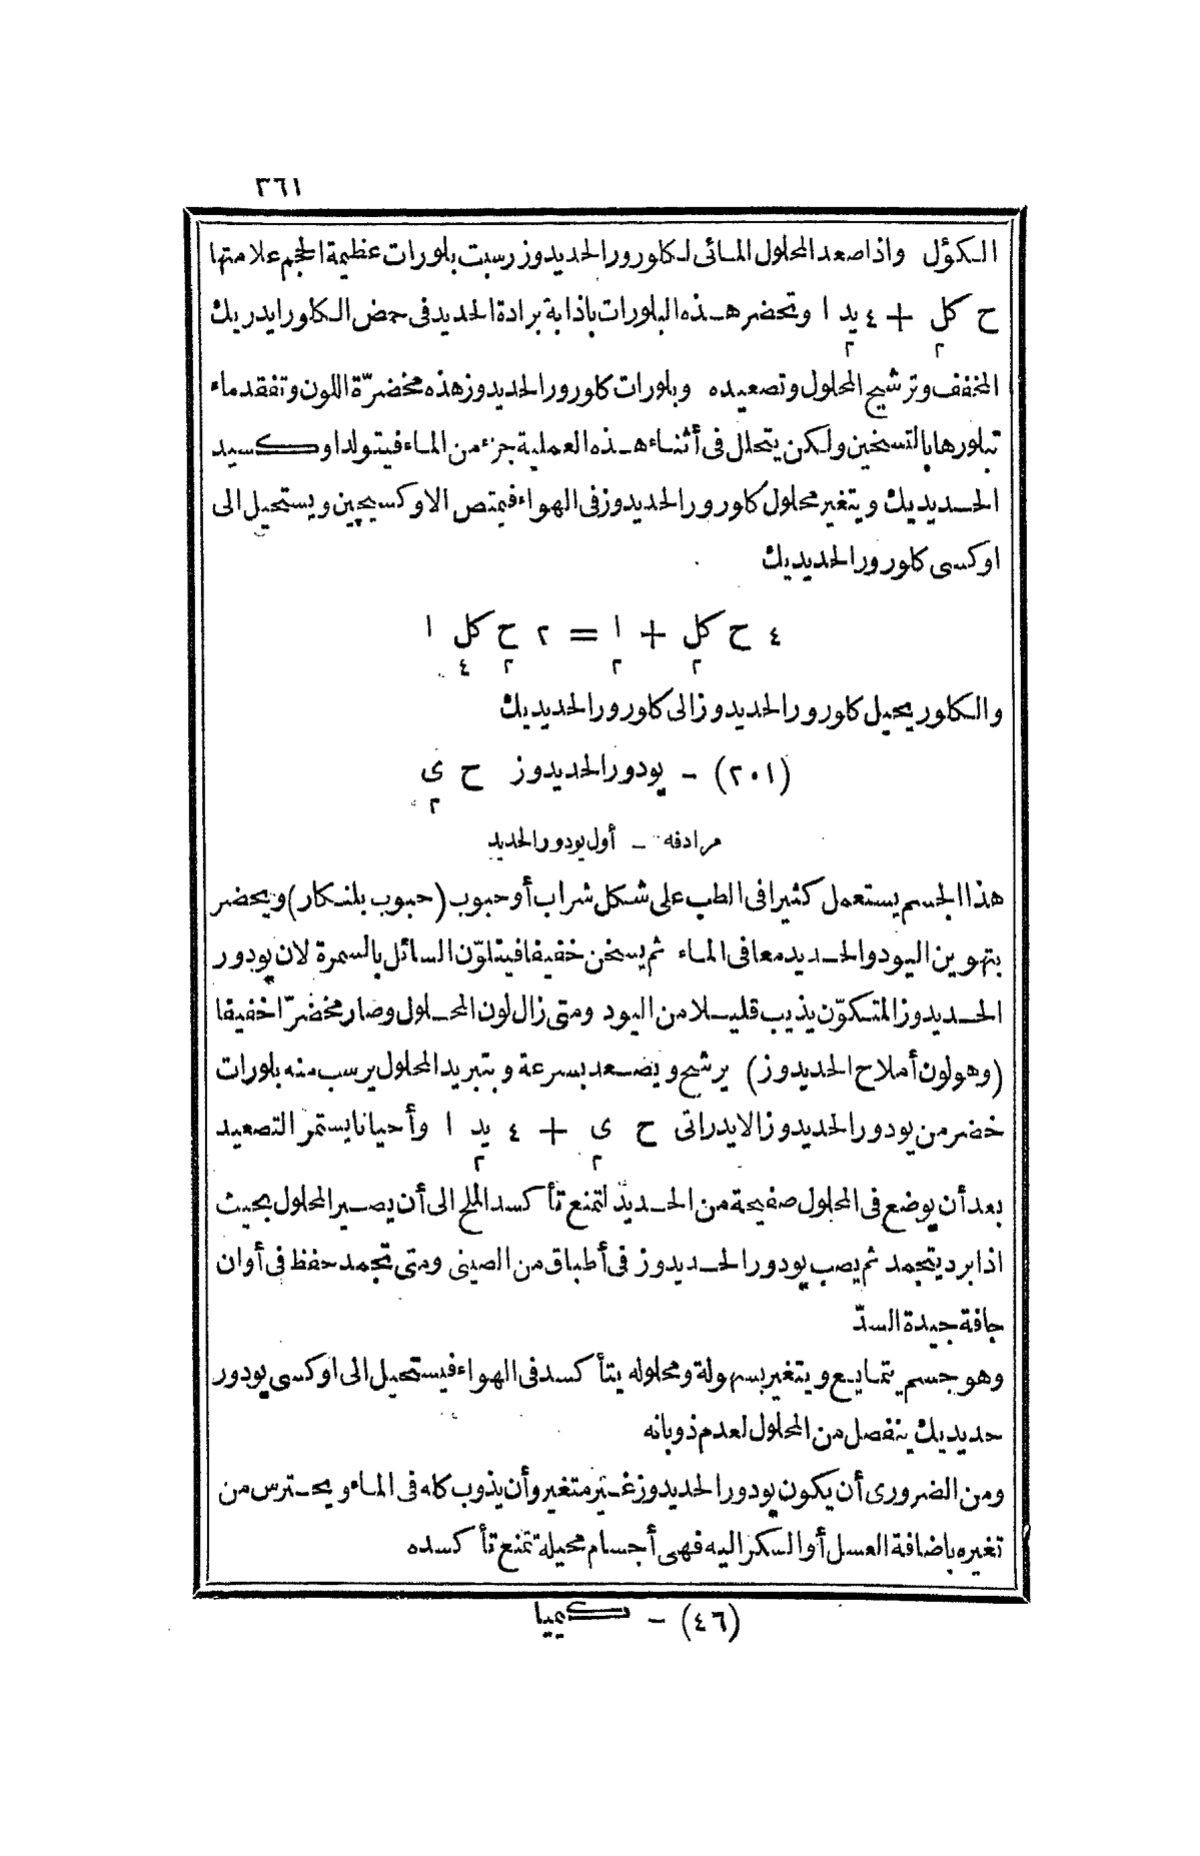 ٣٦١
الكؤل واذا صعد المحلول المائى لكلورور الحديدوز رسبت بلورات عظيمة الحجم علامتها
ح كل٢ + ٤ يد٢ ا وتحضر هذه البلورات باذابة برادة الحديد فى حمض الكلورايدريك
المخفف وترشيح المحلول وتصعيده وبلورات كلورور الحديدوز هذه مخضرّة اللون وتفقد ماء
تبلورها بالتسخين ولكن يتحلل فى أثناء هذه العملية جزء من الماء فيتولد اوكسيد
الحديديك ويتغير محلول كلورور الحديدوز فى الهواء فيمتص الاوكسيجين ويستحيل الى
اوكسى كلورور الحديديك
٤ ح كل٢ + ا٢ = ٢ ح٢ كل٤ ا
والكلور يحيل كلورور الحديدوز الى كلورور الحديديك
(٢٠١) - يودور الحديدوز ح ى٢
مرادفه - أول يودور الحديد
هذا الجسم يستعمل كثيرا فى الطب على شكل شراب أو حبوب (حبوب بلنكار) ويحضر
بتهوين اليود والحديد معا فى الماء ثم يسخن خفيفا فيتلوّن السائل بالسمرة لان يودور
الحديدوز المتكوّن يذيب قليلا من اليود ومتى زال لون المحلول وصار مخضرّا خفيفا
(وهو لون أملاح الحديدوز) يرشح ويصعد بسرعة وبتبريد المحلول يرسب منه بلورات
خضر من يودور الحديدوز الايدراتى ح ى٢ + ٤ يد٢ ا وأحيانا يستمر التصعيد
بعد أن يوضع فى المحلول صفيحة من الحديد لتمنع تأكسد الملح الى أن يصير المحلول بحيث
اذا برد يتجمد ثم يصب يودور الحديدوز فى أطباق من الصينى ومتى تجمد حفظ فى أوان
جافة جيدة السدّ
وهو جسم يتمايع ويتغير بسهولة ومحلوله يتأكسد فى الهواء فيستحيل الى اوكسى يودور
حديديك ينفصل من المحلول لعدم ذوبانه
ومن الضرورى أن يكون يودور الحديدوز غير متغير وأن يذوب كله فى الماء ويحترس من
تغيره باضافة العسل أو السكر اليه فهى أجسام محيلة تمنع تأكسده
(٤٦) - كيميا